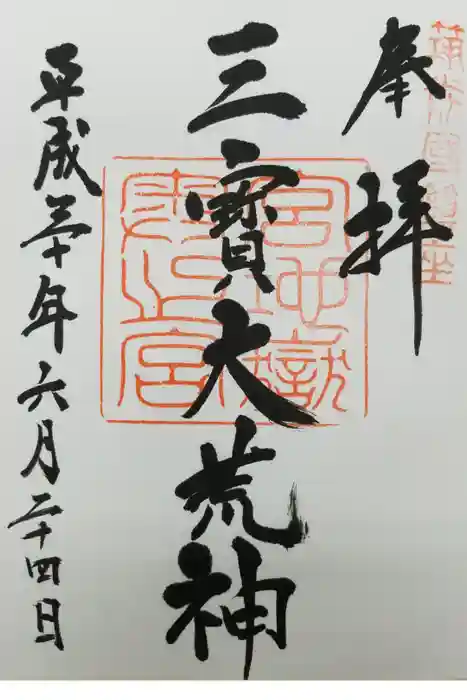 奉拝
三寳大荒神
平成三十年六月二十四日